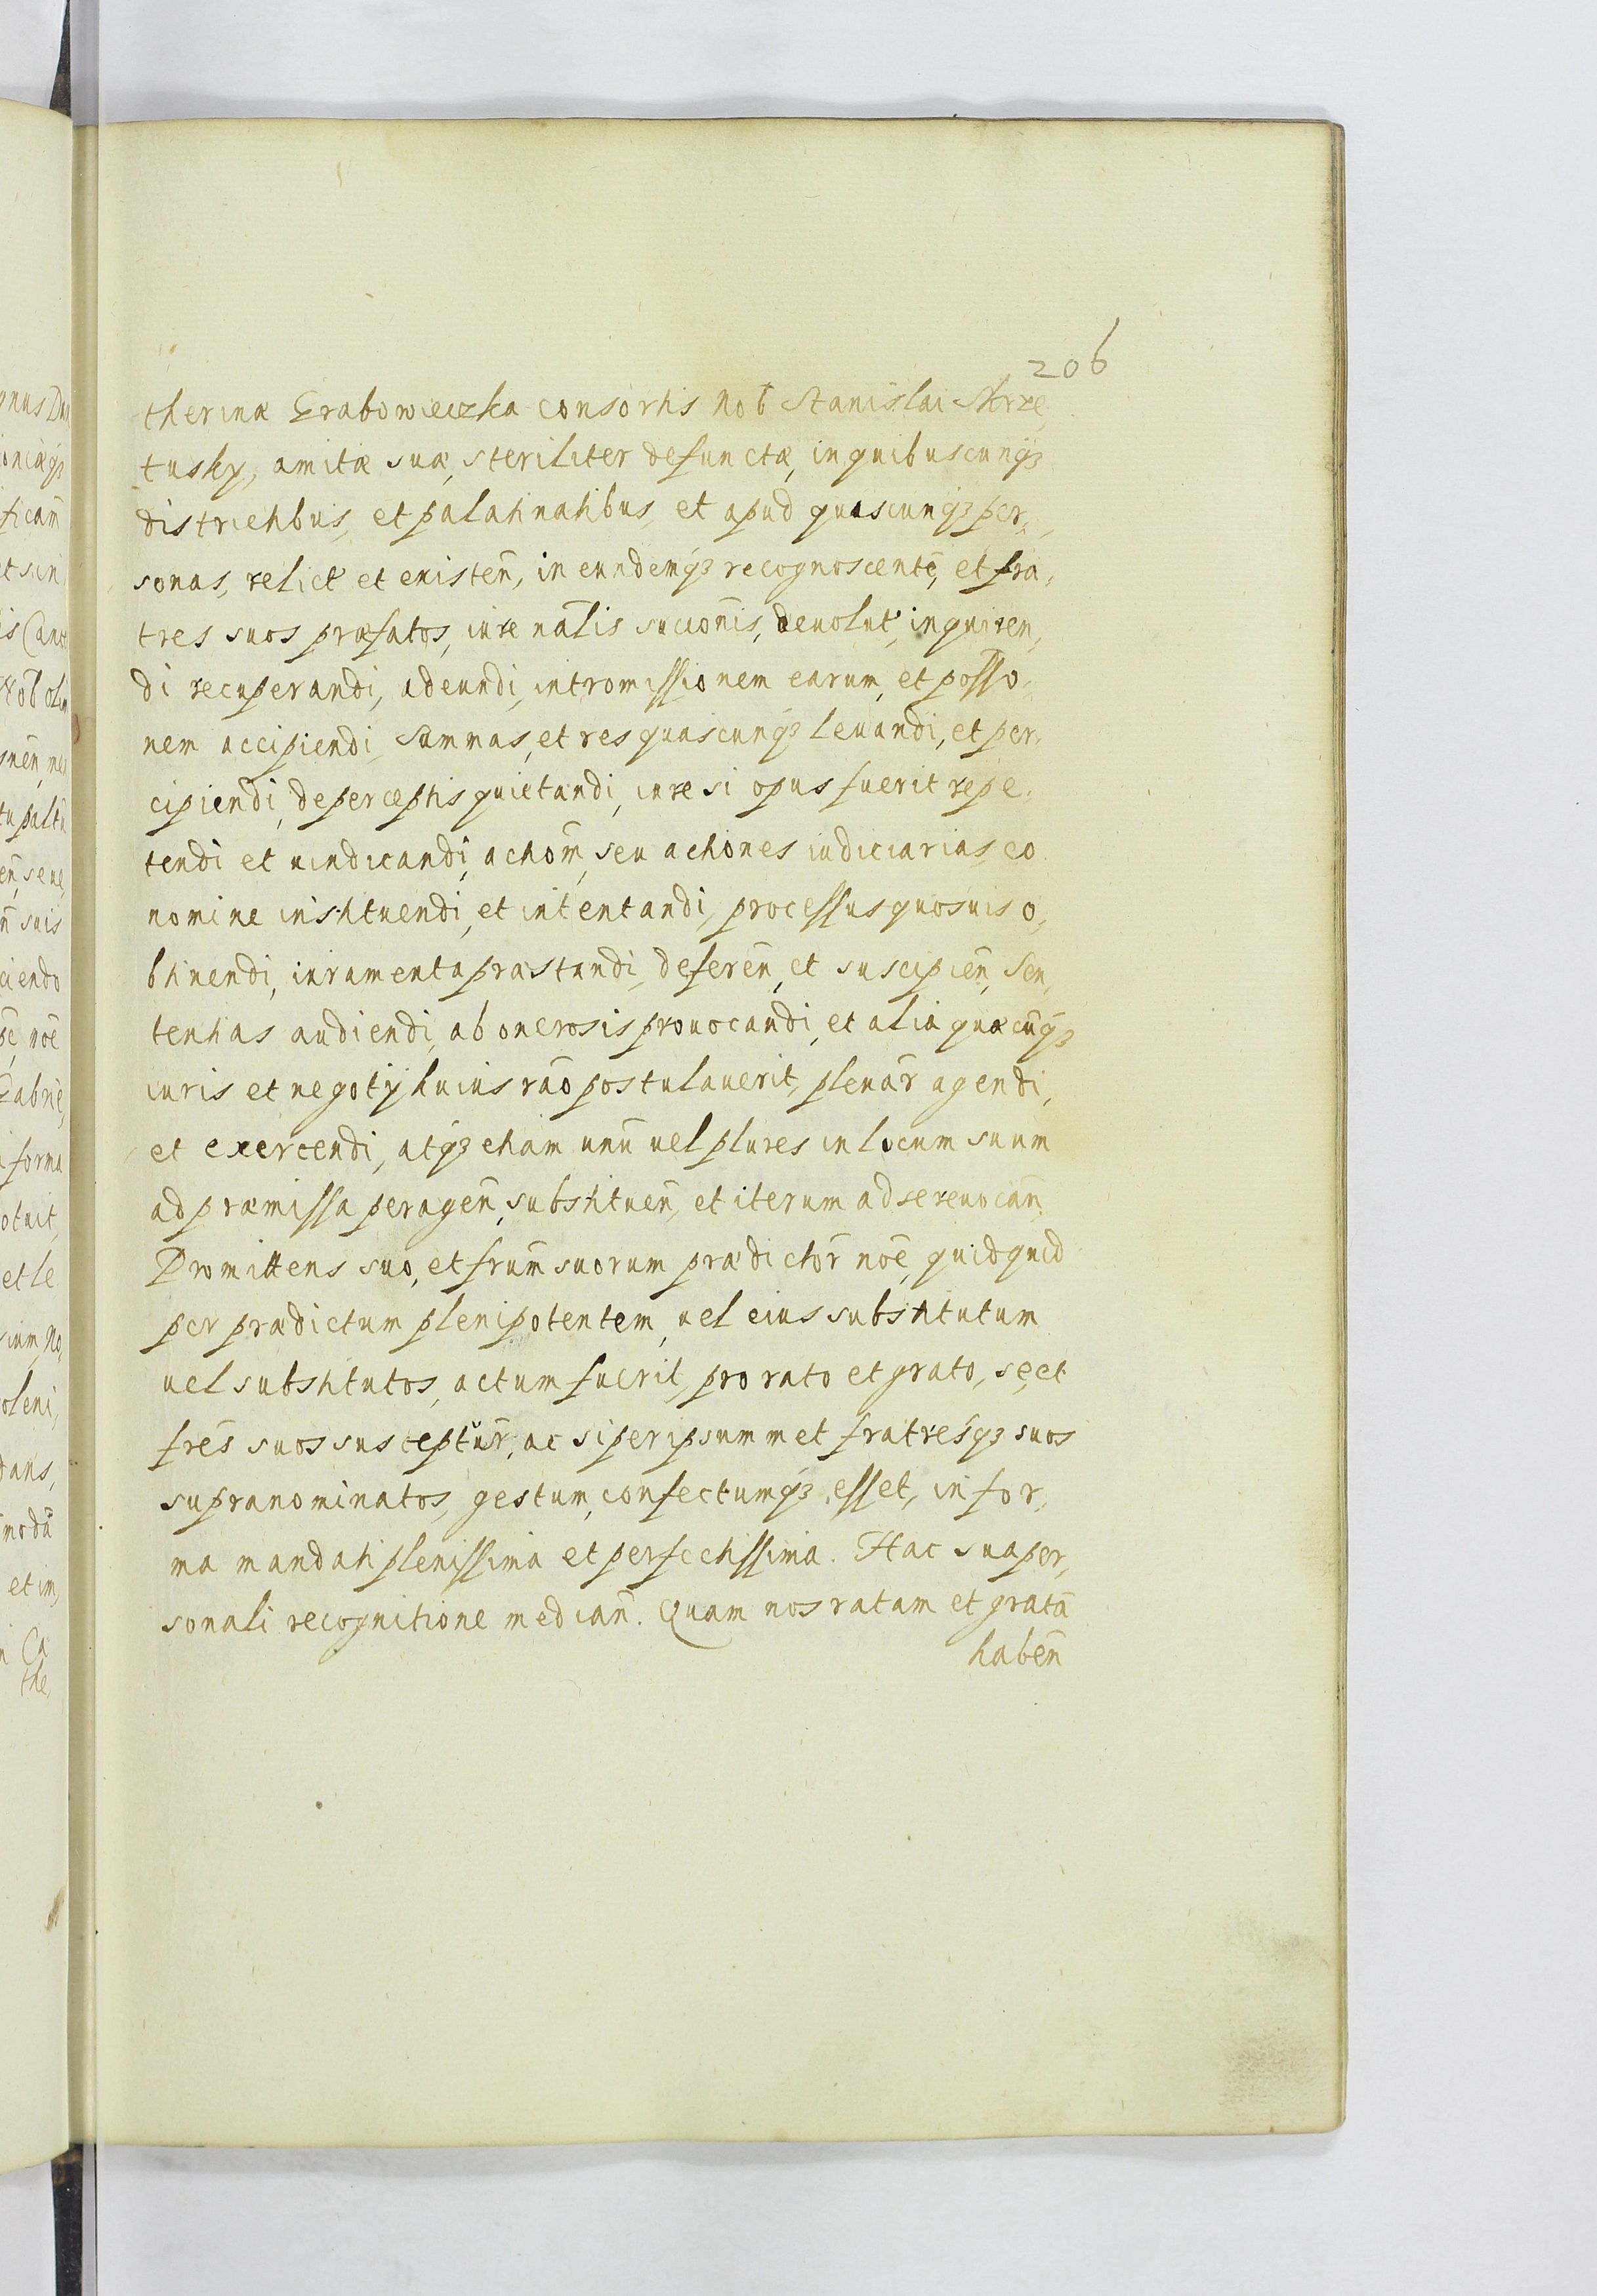 206
therinæ Grabowieczka consortis Nob Stanislai Skrze,
tusky, amitæ suæ, steriliter defunctæ, in quibuscunqȝ
districtibus, et palatinatibus, et apud quascunqȝ per,
sonas, relict et existen̄, in eundemqȝ recognoscentē, et fra,
tres suos præfatos, iure nālis succiōnis, deuolut, inquiren,
di recuperandi, adeundi, intromissionem earum, et posso,
nem accipiendi, Summas, et res quascunqȝ leuandi, et per,
cipiendi, de perceptis quietandi, iure si opus fuerit repe,
tendi et uindicandi, actiom̄, seu actiones iudiciarias, eo
nomine instituendi, et intentandi, processus quosuis o,
btinendi, iuramenta præstandi, deferen̄, et suscipien̄, Sen,
tentias audiendi, ab onerosis prouocandi, et alia quæcūqȝ
iuris et negotÿ huius rāo postulauerit, plenar̄ agendi,
et exercendi, atqȝ etiam unū uel plures in locum suum
ad præmissa peragen̄, substituen̄, et iterum ad se reuocan̄.
Promittens suo, et frum̄ suorum prædictor̄ noē, quidquid
per prædictum plenipotentem, uel eius substitutum
uel substitutos, actum fuerit, pro rato et grato, se, et
frēs suos susceptur̄, ac si per ipsummet fratresqȝ suos
supranominatos, gestum, confectumqȝ esset, in for,
ma mandati plenissima et perfectissima. Hac sua per,
sonali recognitione median̄. Quam nos ratam et gratā
haben̄